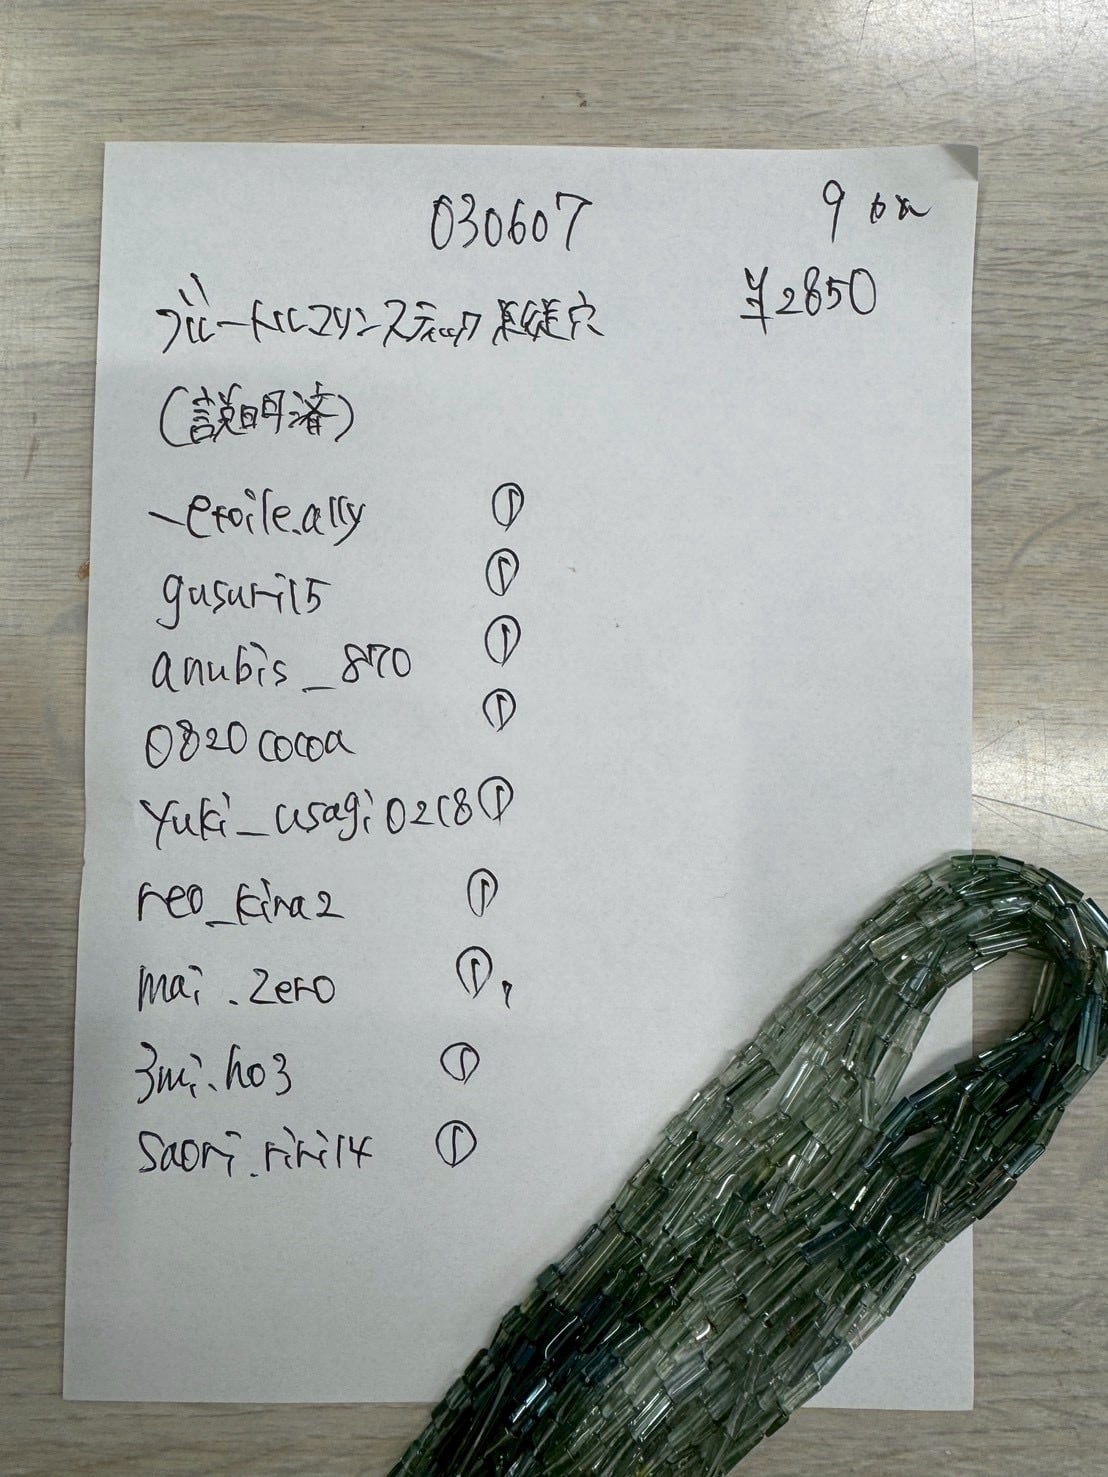 030607
9 本
¥2850
スティック 縦穴
(説明済)
_etoile.ally ①
gusuri15 ①
anubis_870 ①
0820cocoa ①
yuki_usagi0218 ①
reo_kira2 ①
mai.zero ①
3mi.ho3 ①
saori.riri14 ①